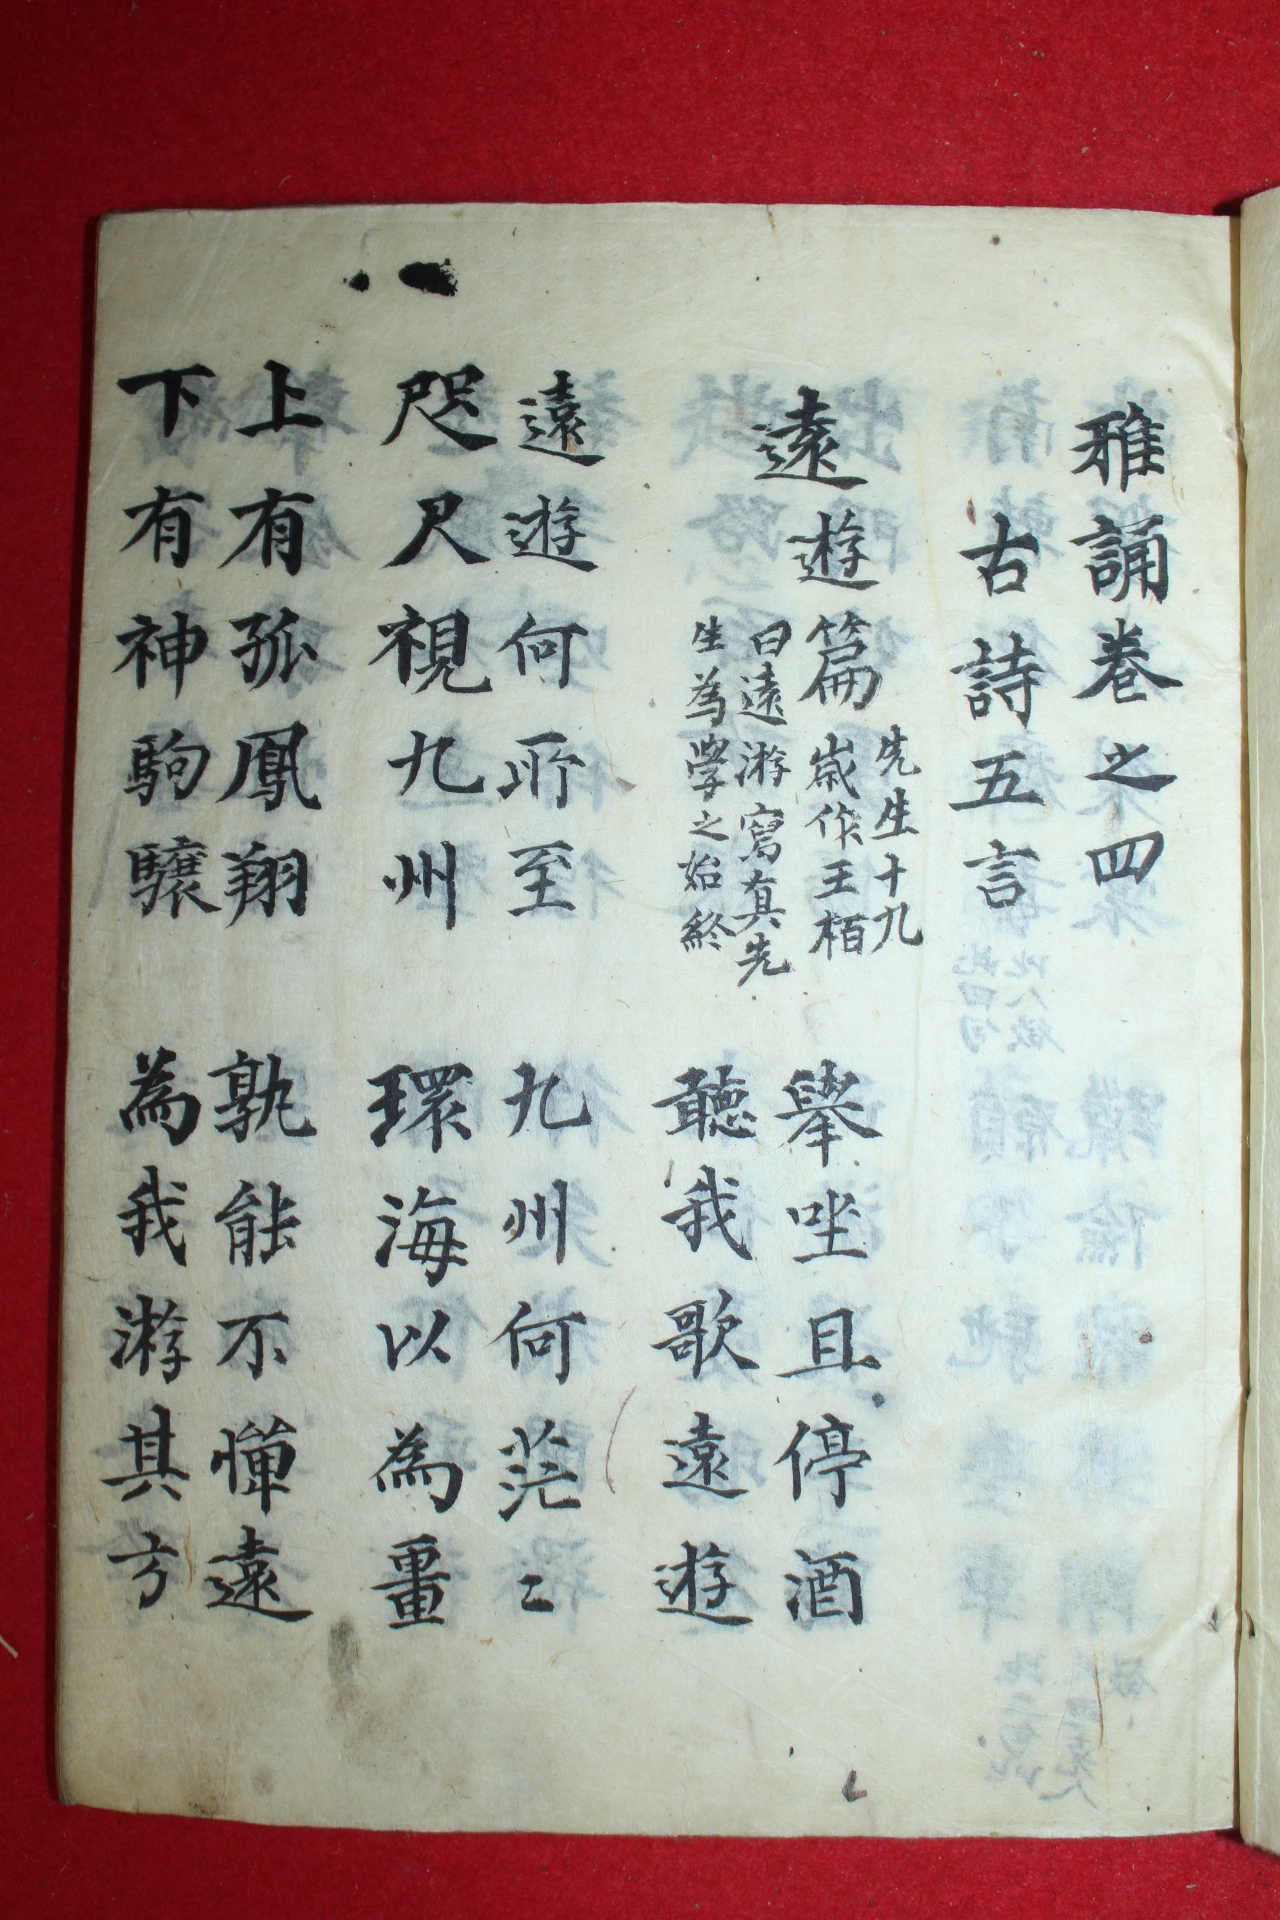 雅誦卷之四
古詩五言
遠遊篇 先生十九歲作王栢曰遠游寫真先生為學之始終 擧坐且停酒
聽我歌遠遊
遠遊何所至 九州何茫〻
咫尺視九州 環海以為畺
上有孤鳳翔 孰能不憚遠
下有神駒驤 為我游其方